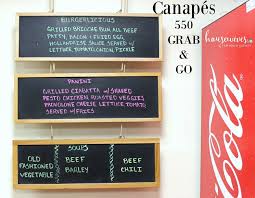 Canapés
550
GRAB
&
GO
housewives
BURGERLICIOUS
GRILLED BRIOCHE BUN ALL BEEF
PATTY, BACON & FRIED EGG,
HOLLANDAISE SAUCE SERVED W/
LETTUCE TOMATO ONION, PICKLE
PANINI
GRILLED CIABATTA W/ SHAVED
PESTO CHICKEN ROASTED VEGGIES
PROVOLONE CHEESE LETTUCE TOMATO
SERVED W/ FRIES
SOUPS
OLD
FASHIONED
VEGETABLE
BEEF
BARLEY
BEEF
CHILI
Cola